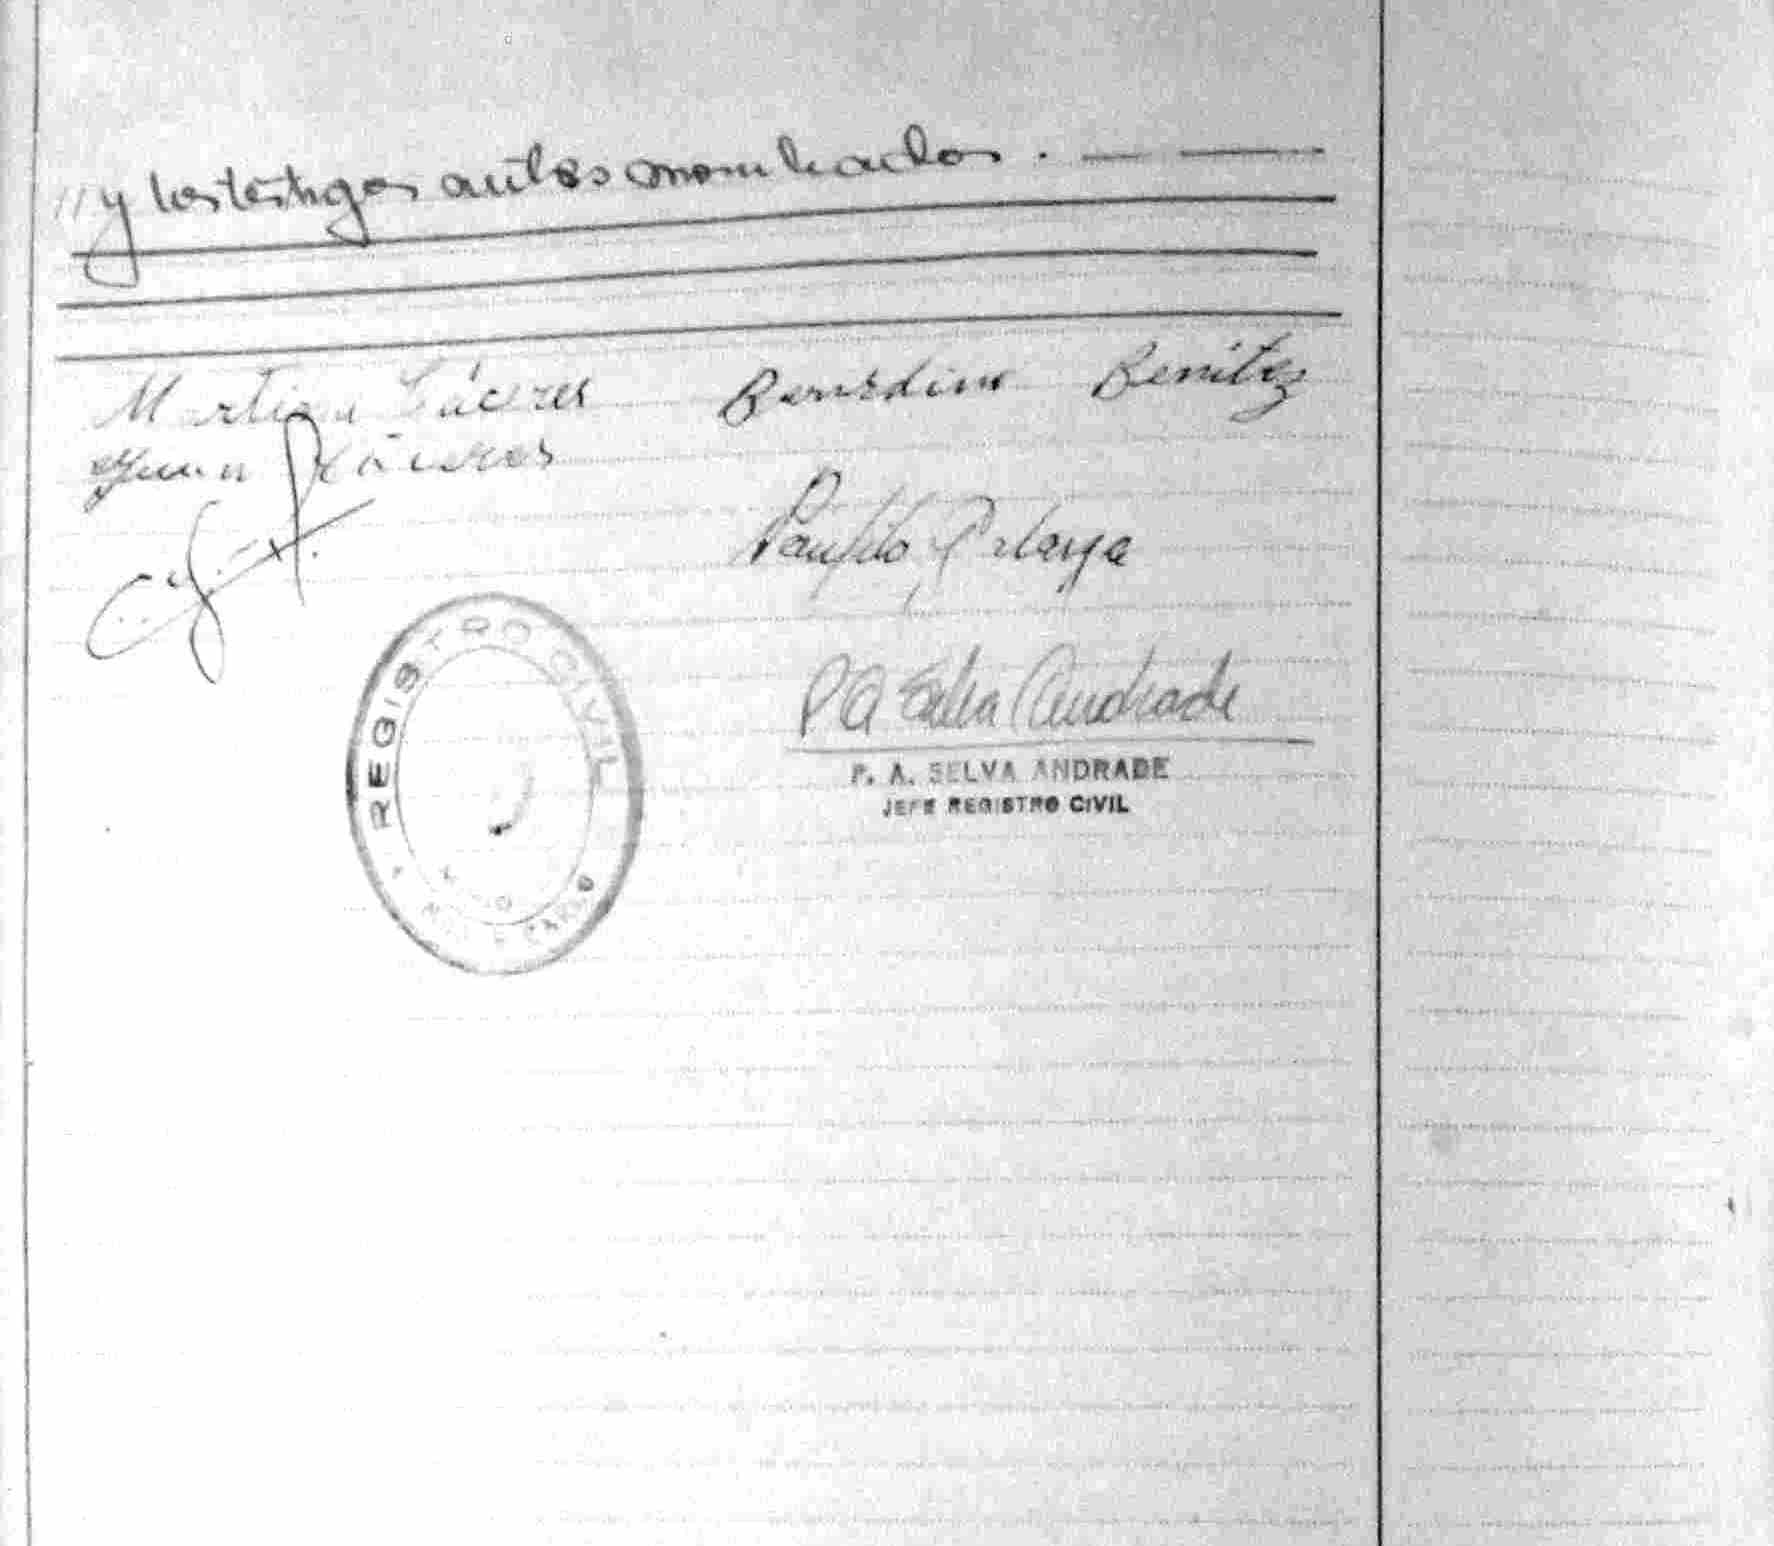 // y los testigos antes nombrados. — —
Martina Cáceres Bernardino Benitez
Juan Cáceres
Panfilo Pelaya
P A Selva Andrade
P. A. SELVA ANDRADE
JEFE REGISTRO CIVIL
REGISTRO CIVIL